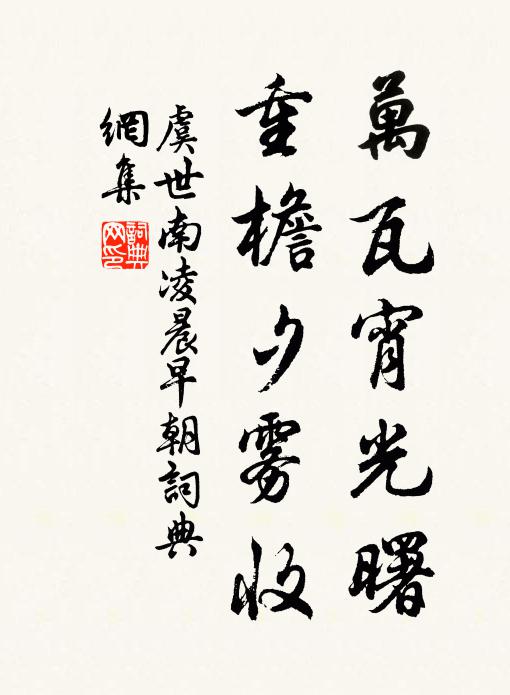 萬瓦宵光曙
重檐夕雾收
虞世南凌晨早朝詞典
網集
詞典
网印